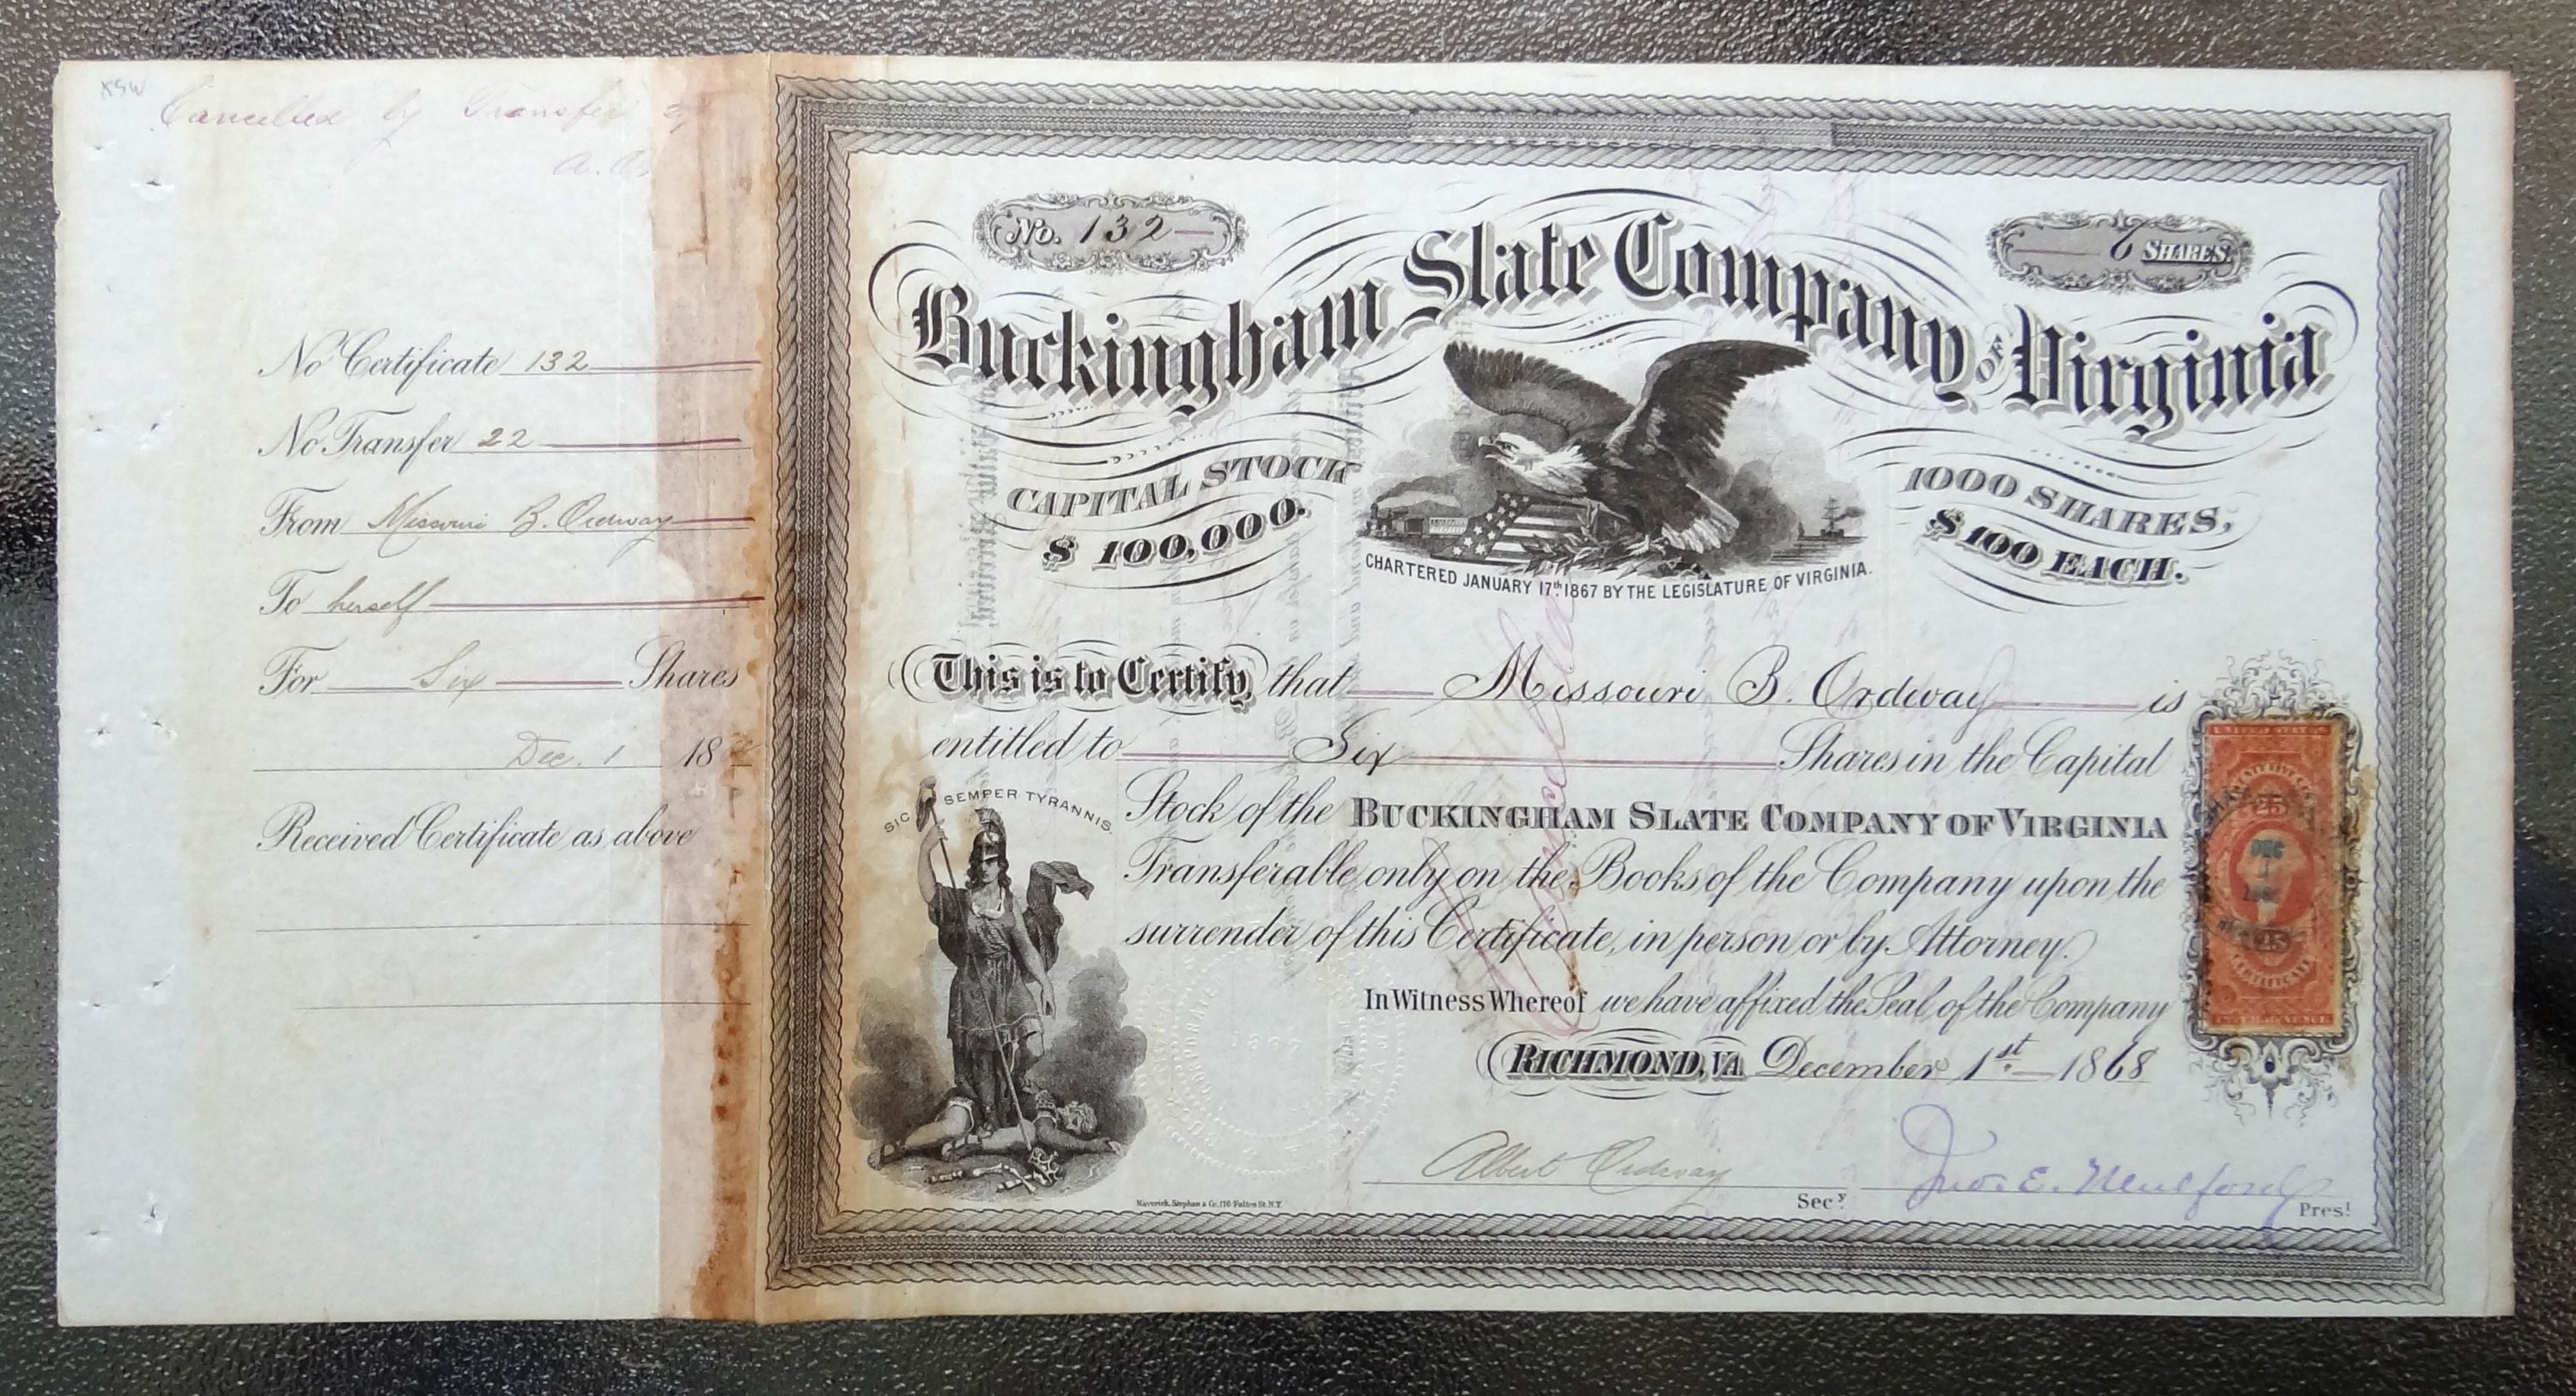 Cancelled by Transfer 27
No Certificate 132
No. Transfer 22
From Missouri B. Ordway
To herself
For Six Shares
Dec. 1 18
Received Certificate as above
No. 132
6 SHARES.
Buckingham Slate Company OF Virginia
CAPITAL STOCK
$ 100,000.
1000 SHARES,
$ 100 EACH.
CHARTERED JANUARY 17th 1867 BY THE LEGISLATURE OF VIRGINIA.
This is to Certify, that Missouri B. Ordway is
entitled to Six Shares in the Capital
SIC SEMPER TYRANNIS.
Stock of the BUCKINGHAM SLATE COMPANY OF VIRGINIA
Transferable only on the Books of the Company upon the
surrender of this Certificate, in person or by Attorney.
In Witness Whereof we have affixed the Seal of the Company
RICHMOND, VA. December 1st 1868
Albert Ordway Secy.
Jno. E. Mulford Prest
Maverick, Stephan & Co. 176 Fulton St. N.Y.
Cancelled
25
DEC
1
25
CERTIFICATE